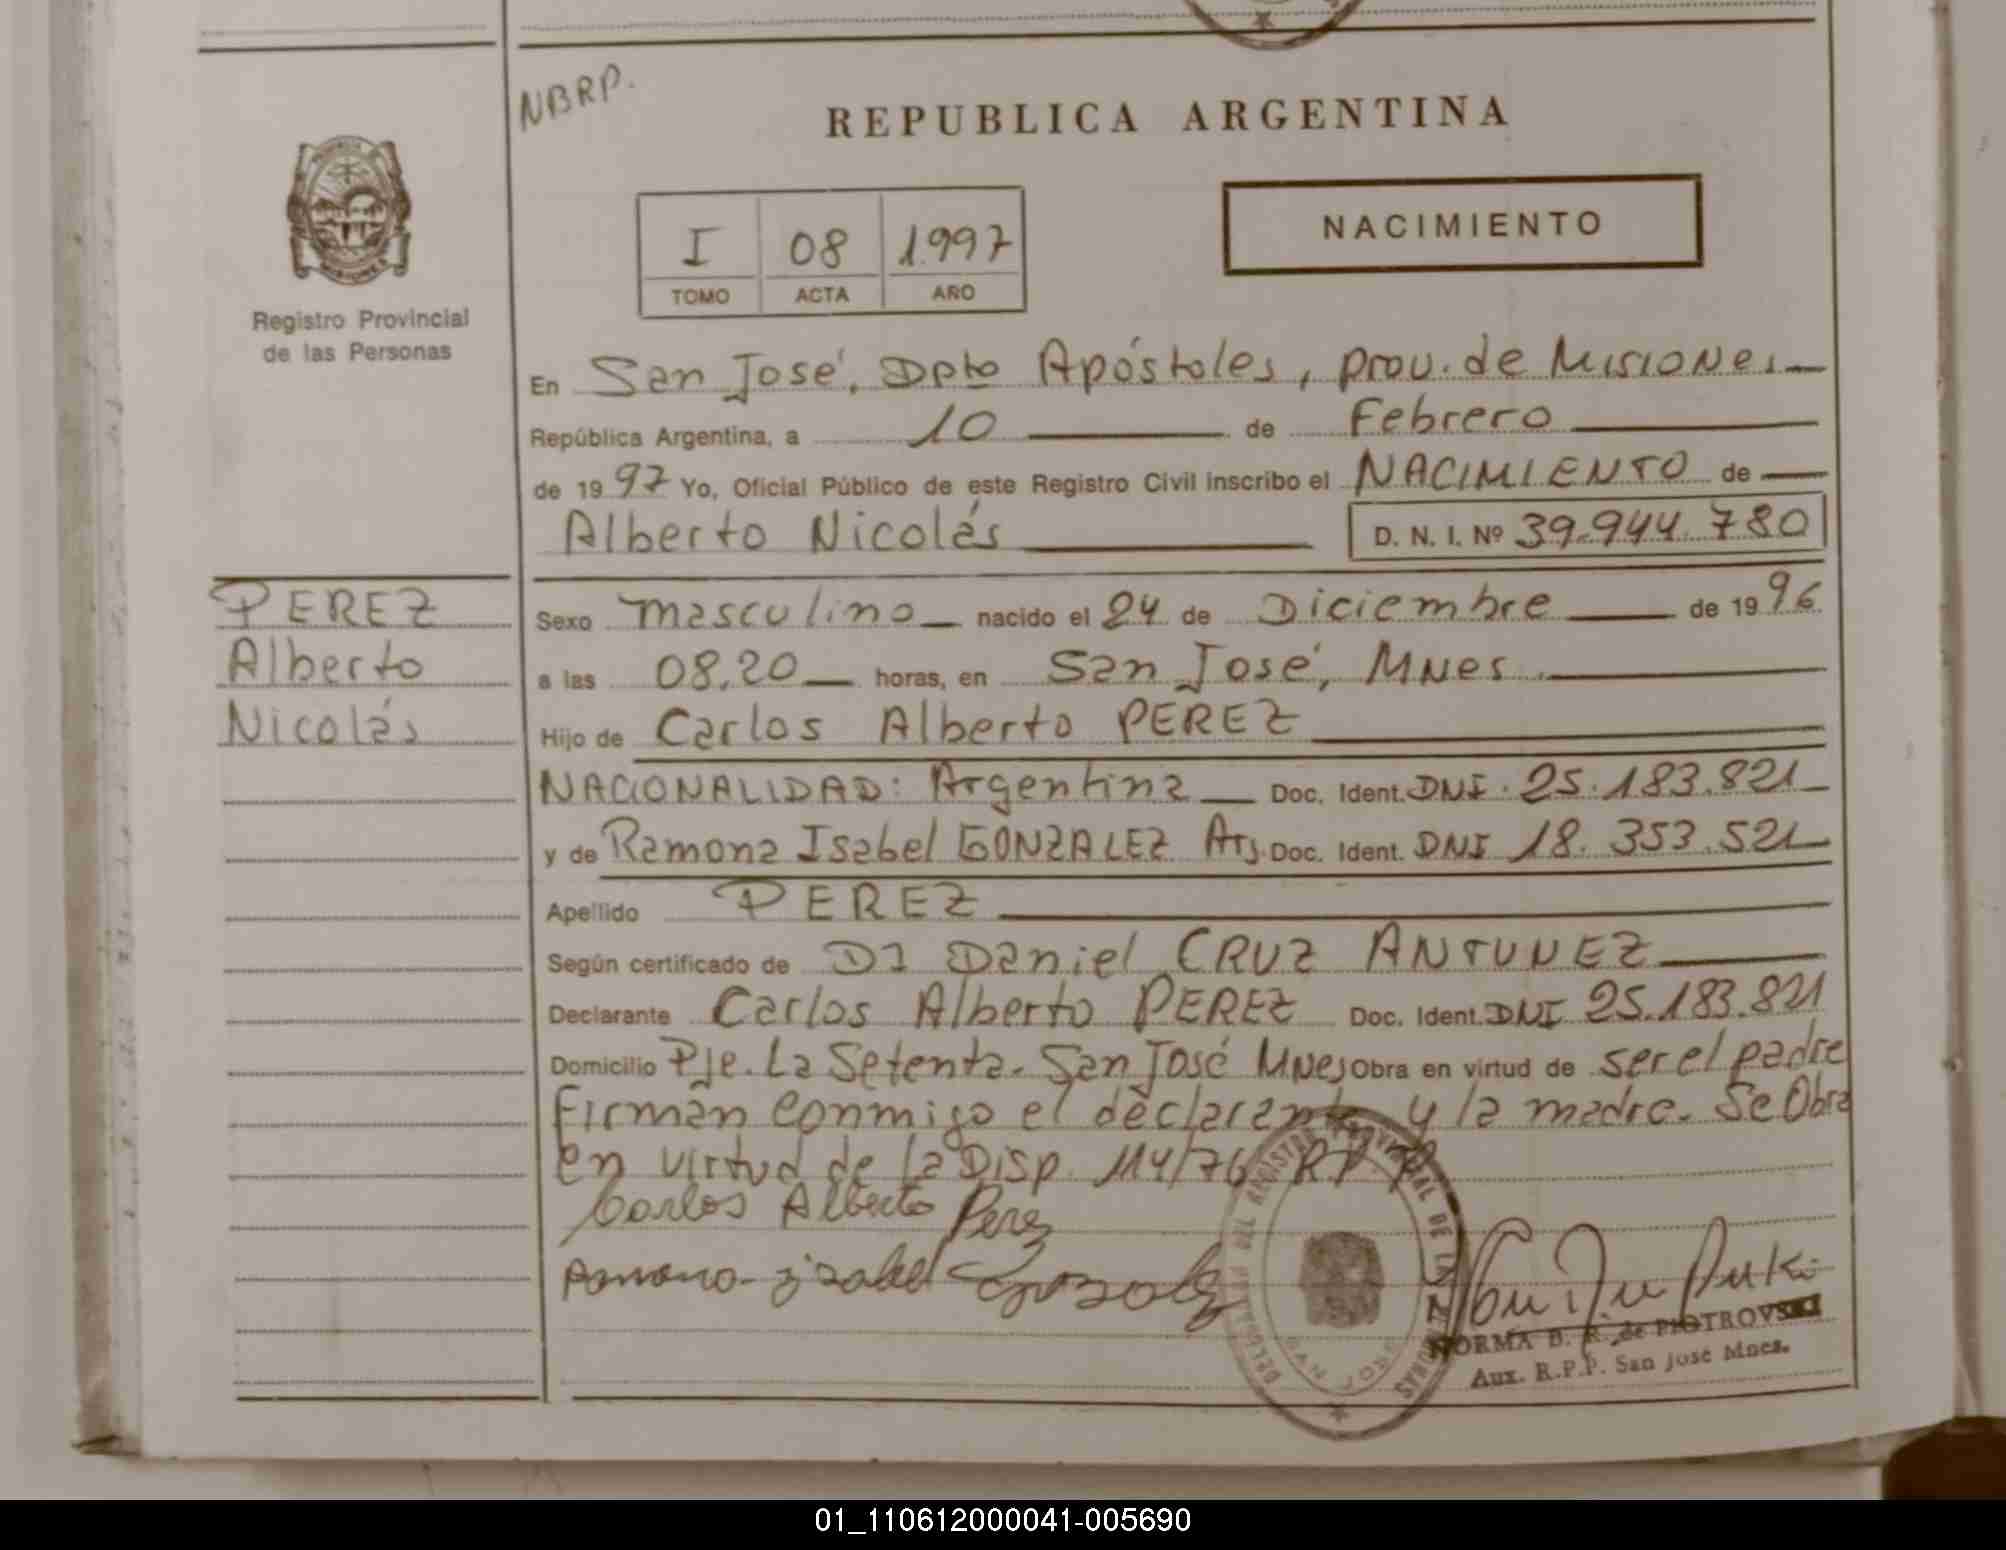 NBRP.
REPUBLICA ARGENTINA
MISIONES
Registro Provincial
de las Personas
I 08 1997
TOMO ACTA AÑO
NACIMIENTO
En San José, Dpto Apóstoles, prov. de Misiones
República Argentina, a 10 de Febrero
de 1997 Yo, Oficial Público de este Registro Civil inscribo el NACIMIENTO de
Alberto Nicolás D. N. I. Nº 39.944.780
PEREZ
Alberto
Nicolás
Sexo masculino nacido el 24 de Diciembre de 1996
a las 08,20 horas, en San José, Mnes.
Hijo de Carlos Alberto PEREZ
NACIONALIDAD: Argentina Doc. Ident. DNI. 25.183.821
y de Ramona Isabel GONZALEZ Arg. Doc. Ident. DNI 18.353.521
Apellido PEREZ
Según certificado de Daniel CRUZ ANTUNEZ
Declarante Carlos Alberto PEREZ Doc. Ident. DNI 25.183.821
Domicilio Pje. La Setenta. San José Mnes Obra en virtud de ser el padre
Firman conmigo el declarante y la madre. Se Obra
en virtud de la Disp. 114/76 RPP
Carlos Alberto Perez
Ramona Isabel Gonzalez
DELEGACION DEL REGISTRO PROVINCIAL DE LAS PERSONAS
SAN JOSE
NORMA B. R. de PIOTROVSKI
Aux. R.P.P. San José Mnes.
01_110612000041-005690